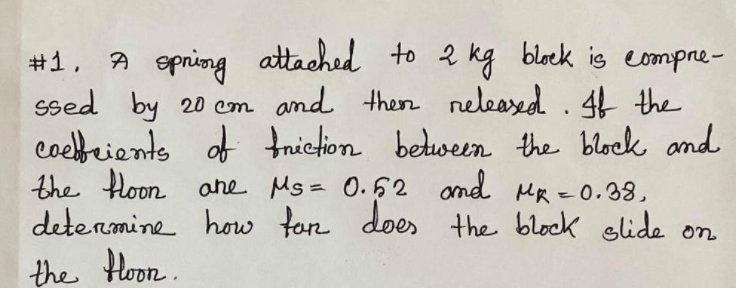 #1. A spring attached to 2 kg block is compre-
ssed by 20 cm and then released. If the
coefficients of friction between the block and
the floor are μs = 0.52 and μk = 0.38,
determine how far does the block slide on
the floor.